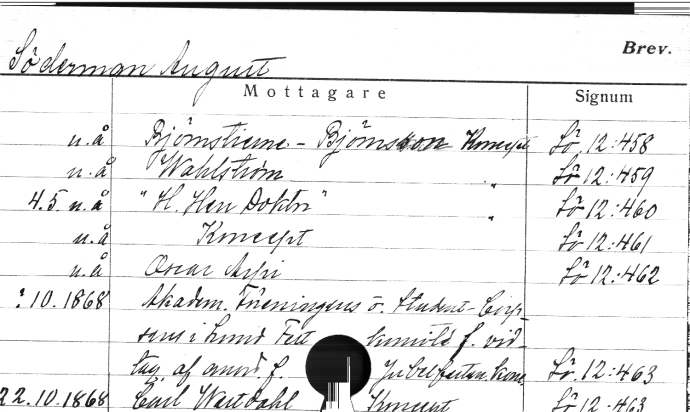 Söderman August
Brev.
Mottagare
Signum
n.å Björnstierne-Björnsson Koncept Sö 12:458
n.å Wahlström " Sö 12:459
4.5. n.å "H. Herr Doktor" " Sö 12:460
n.å Koncept Sö 12:461
n.å Oscar Arpi Sö 12:462
?.10.1868 Akadem. Föreningens o. Student-Corp-
sens i Lund f. vid-
tag. af anord. f. Jubelfesten. Konc. Sö. 12:463
22.10.1868 Carl Wart Dahl Koncept Sö 12:463